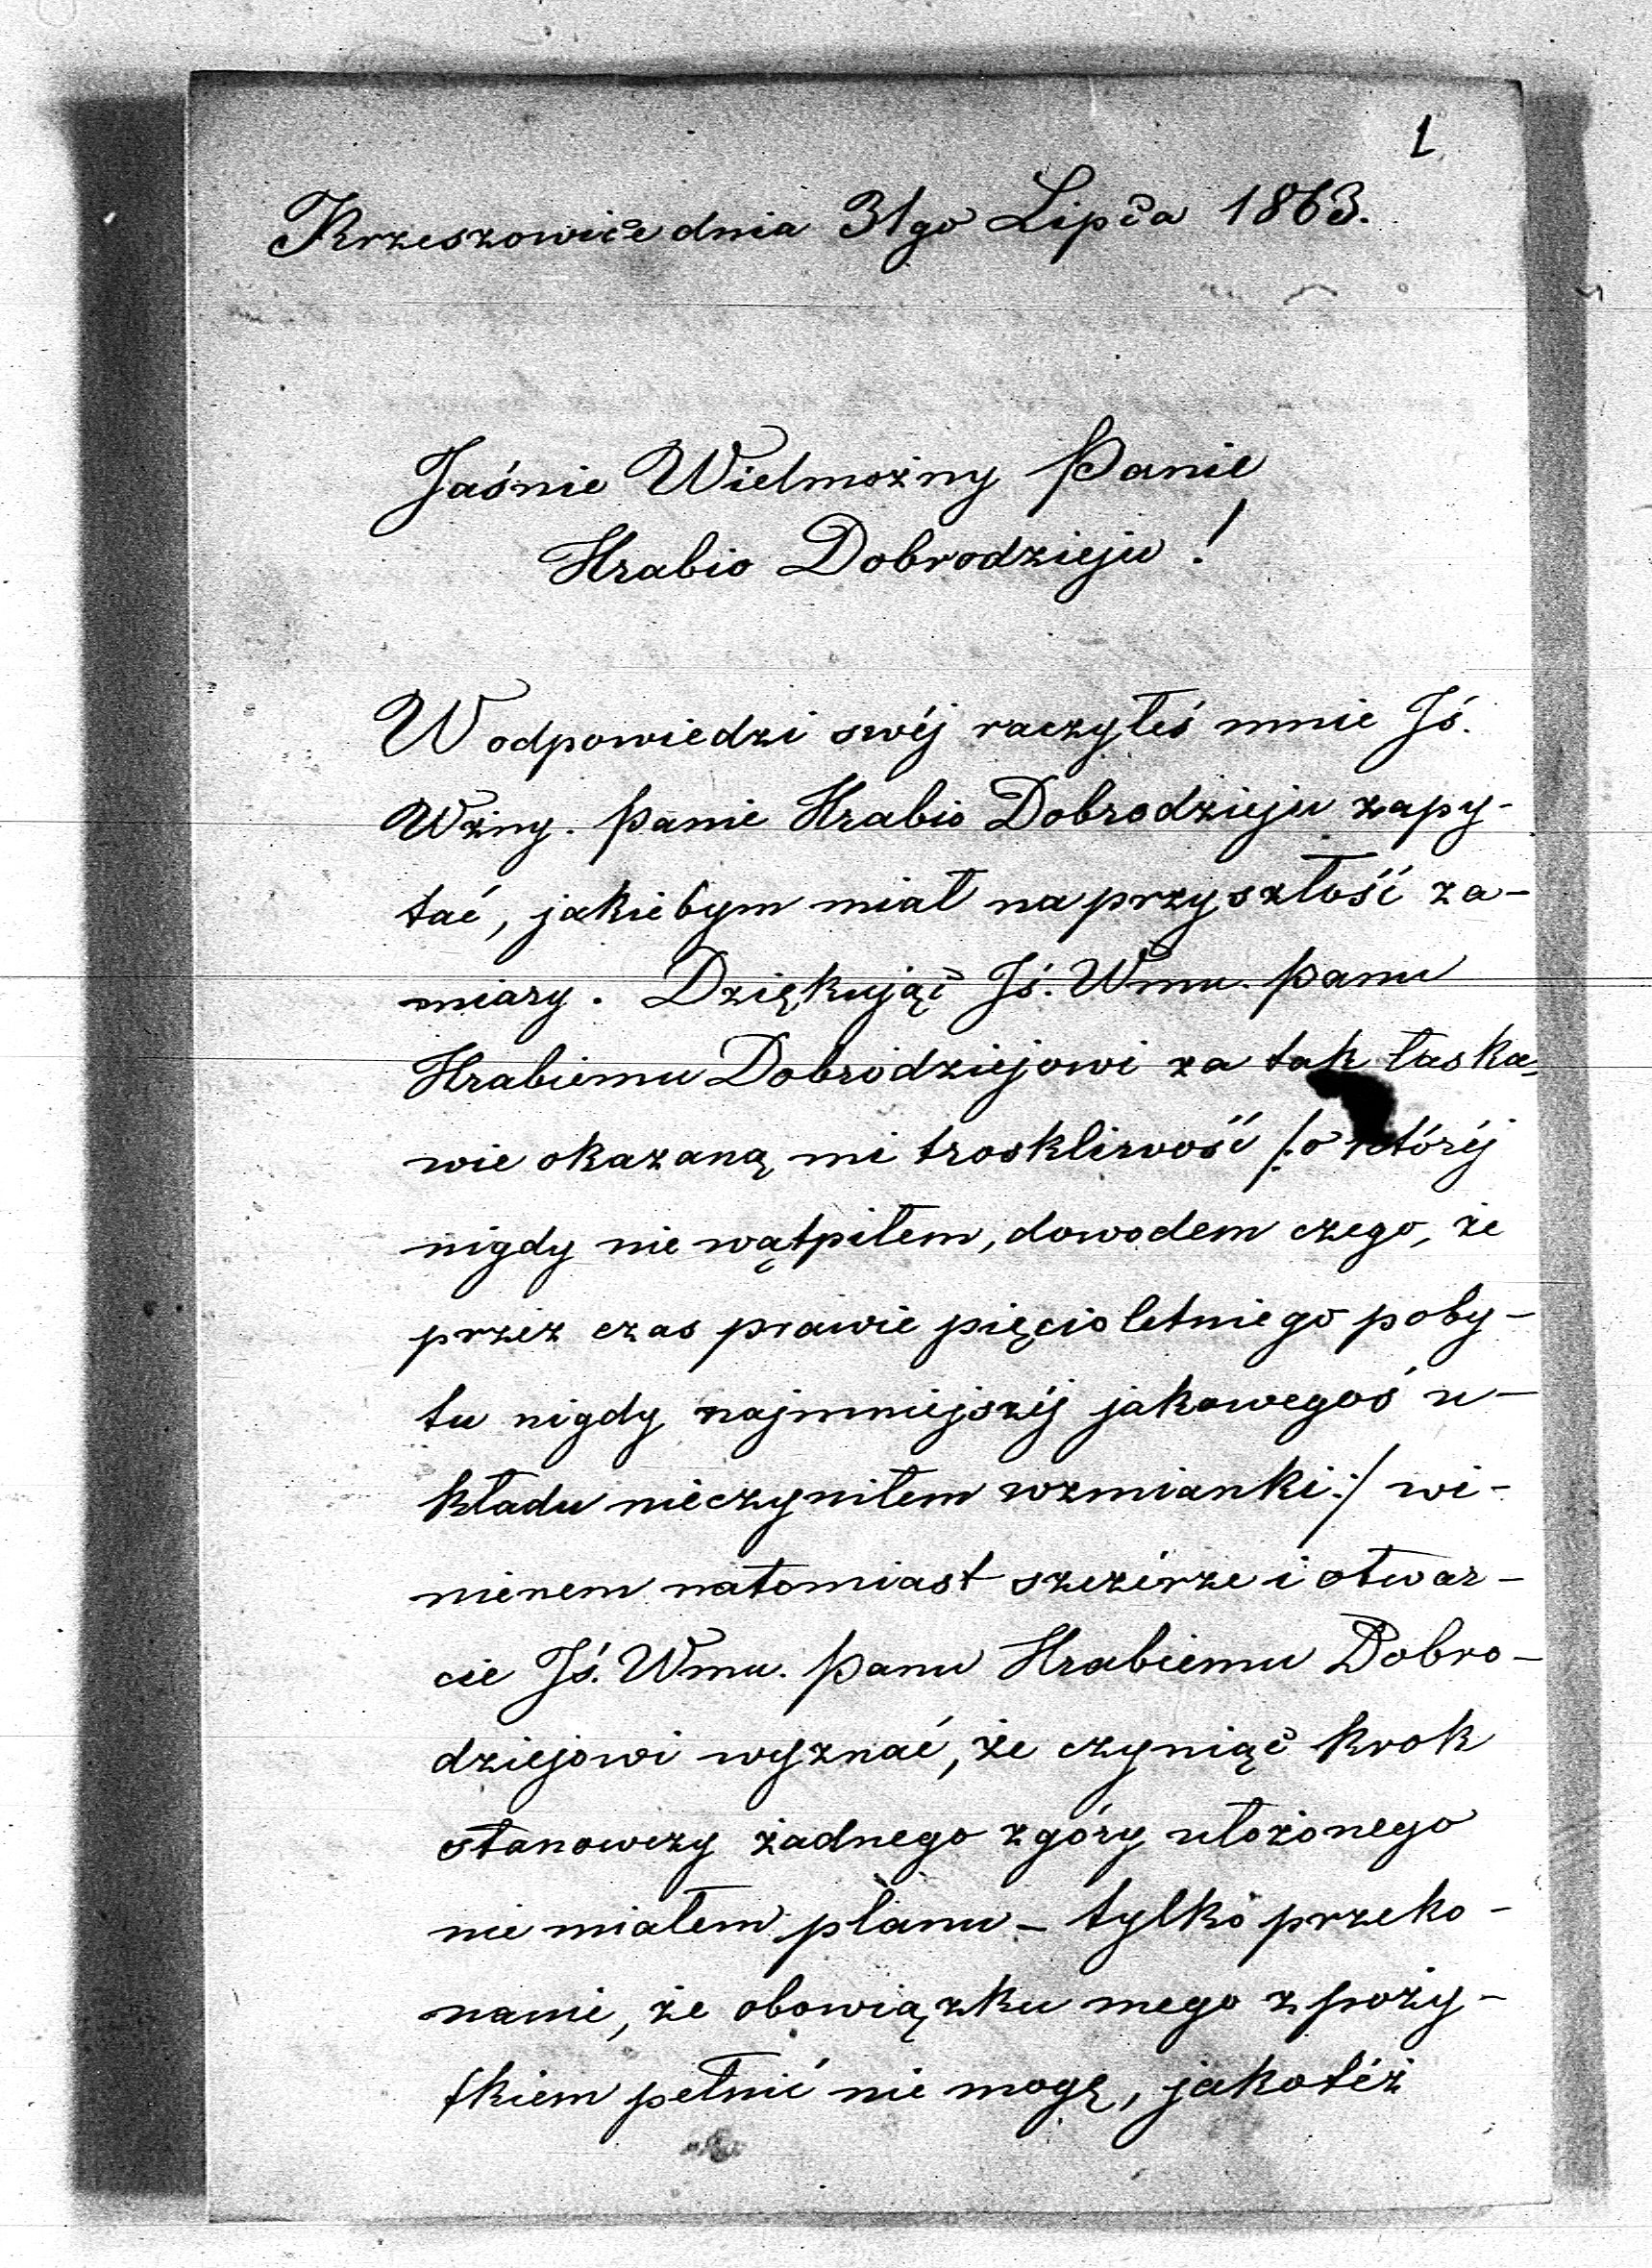 1
Krzeszowice dnia 31go Lipca 1863.
Jaśnie Wielmożny Panie
Hrabio Dobrodzieju!
W odpowiedzi swéj raczyłeś mnie Jś.
Wżny. Panie Hrabio Dobrodzieju zapy-
tać, jakiebym miał na przyszłość za-
miary. Dziękując Jś. Wmu. Panu
Hrabiemu Dobrodziejowi za tak łaska-
wie okazaną mi troskliwość /: o któréj
nigdy nie wątpiłem, dowodem czego, że
przez czas prawie pięcioletniego poby-
tu nigdy najmniejszéj jakowegoś u-
kładu nieczyniłem wzmianki :/ wi-
nienem natomiast szczérze i otwar-
cie Jś. Wmu. Panu Hrabiemu Dobro-
dziejowi wyznać, że czyniąc krok
stanowczy żadnego z góry ułożonego
nie miałem planu - tylko przeko-
nanie, że obowiązku mego z poży-
tkiem pełnić nie mogę, jakotéż